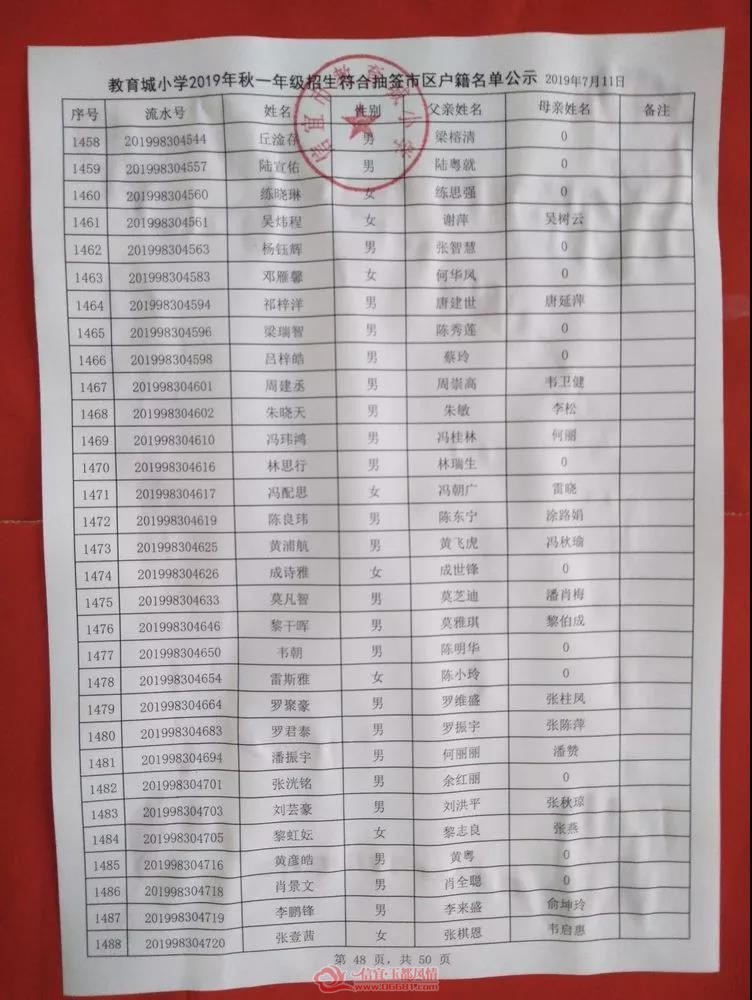 教育城小学2019年秋一年级招生符合抽签市区户籍名单公示 2019年7月11日
信宜市教育城小学
序号 流水号 姓名 性别 父亲姓名 母亲姓名 备注
1458 201998304544 丘淦存 男 梁榕清 0
1459 201998304557 陆宣佑 男 陆粤就 0
1460 201998304560 练晓琳 女 练思强 0
1461 201998304561 吴炜程 女 谢萍 吴树云
1462 201998304563 杨钰辉 男 张智慧 0
1463 201998304583 邓雁馨 女 何华凤 0
1464 201998304594 祁梓洋 男 唐建世 唐延萍
1465 201998304596 梁瑞智 男 陈秀莲 0
1466 201998304598 吕梓皓 男 蔡玲 0
1467 201998304601 周建丞 男 周崇高 韦卫健
1468 201998304602 朱晓天 男 朱敏 李松
1469 201998304610 冯玮鸿 男 冯桂林 何丽
1470 201998304616 林思行 男 林瑞生 0
1471 201998304617 冯配思 女 冯朝广 雷晓
1472 201998304619 陈良玮 男 陈东宁 涂路娟
1473 201998304625 黄浦航 男 黄飞虎 冯秋瑜
1474 201998304626 成诗雅 女 成世锋 0
1475 201998304633 莫凡智 男 莫芝迪 潘肖梅
1476 201998304646 黎干晖 男 莫雅琪 黎伯成
1477 201998304650 韦朝 男 陈明华 0
1478 201998304654 雷斯雅 女 陈小玲 0
1479 201998304664 罗聚豪 男 罗维盛 张柱凤
1480 201998304683 罗君泰 男 罗振宇 张陈萍
1481 201998304694 潘振宇 男 何丽丽 潘赞
1482 201998304701 张洸铭 男 余红丽 0
1483 201998304703 刘芸豪 男 刘洪平 张秋琼
1484 201998304705 黎虹妘 女 黎志良 张燕
1485 201998304716 黄彦皓 男 黄粤 0
1486 201998304718 肖景文 男 肖全聪 0
1487 201998304719 李鹏锋 男 李来盛 俞坤玲
1488 201998304720 张壹茜 女 张棋恩 韦启惠
第 48 页，共 50 页
信宜·玉都风情
www.06681.com